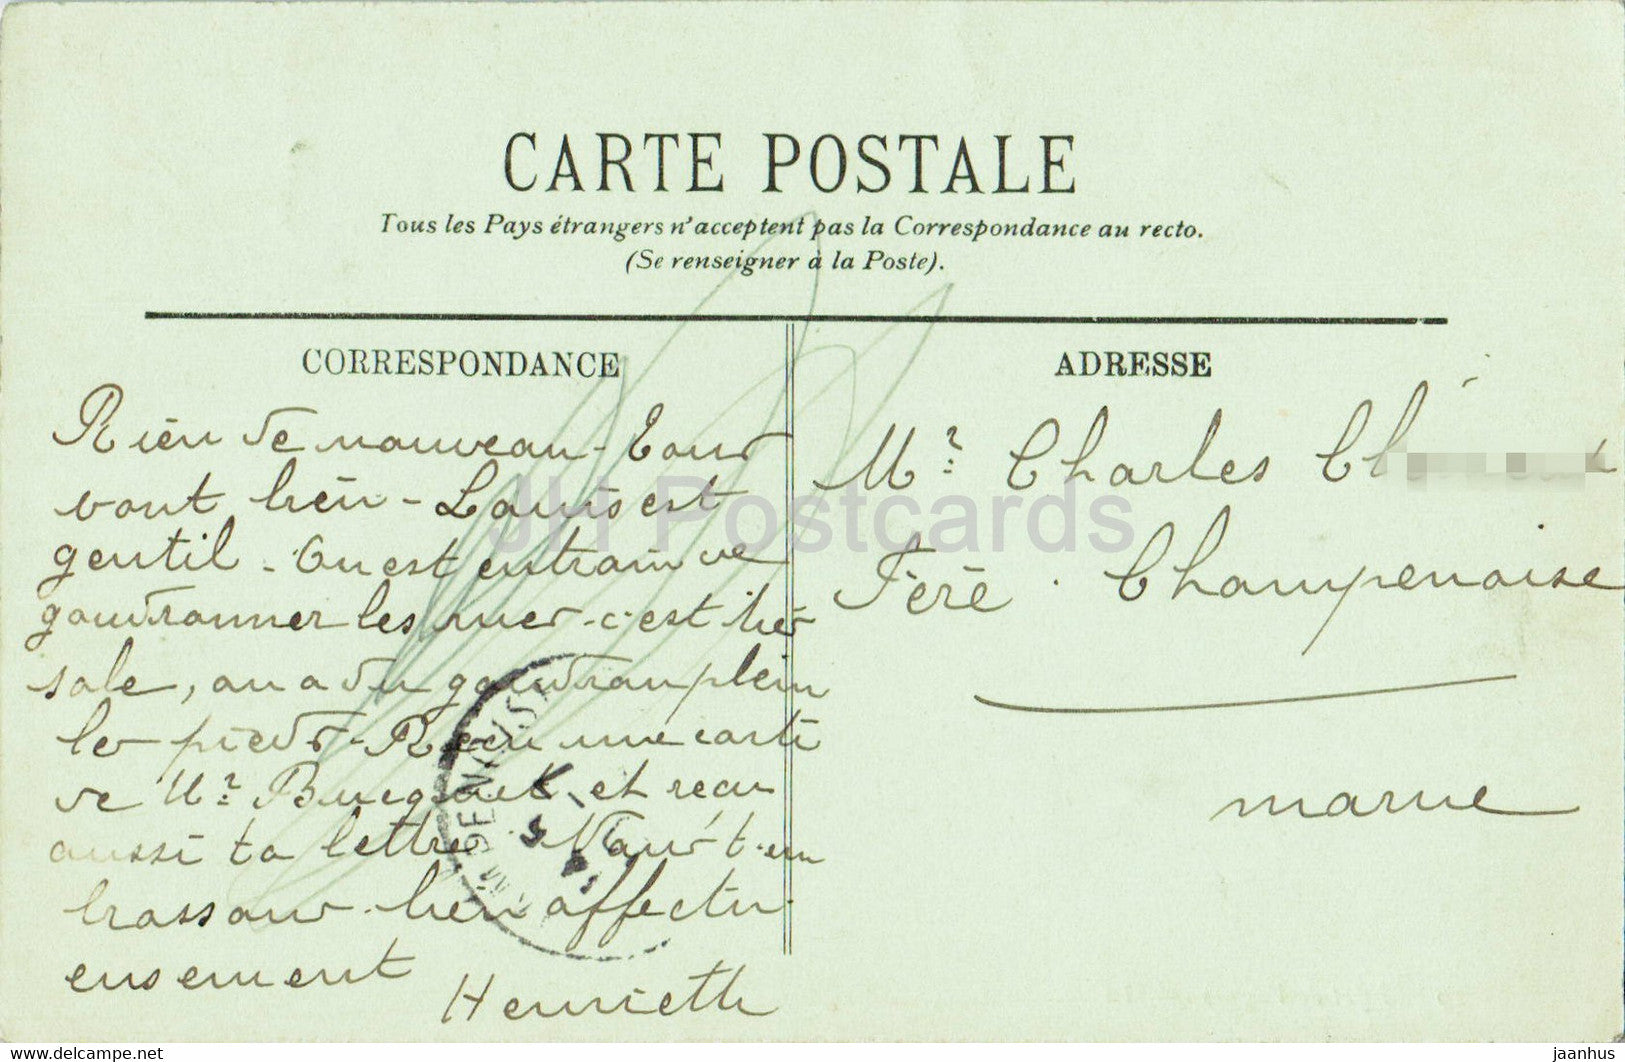 CARTE POSTALE
Tous les Pays étrangers n'acceptent pas la Correspondance au recto.
(Se renseigner à la Poste).
CORRESPONDANCE
Rien de nouveau - Tous
vont bien - Louis est
gentil - On est en train de
goudronner les rues - c'est très
sale, on a du goudron plein
les pieds - Reçu une carte
de Mr. Bucquet et reçu
aussi ta lettre. Nous t'em
brassons bien affectu
eusement
Henriette
ADRESSE
Mr. Charles
Fère Champenoise
Marne
JH Postcards
www.delcampe.net
jaanhus